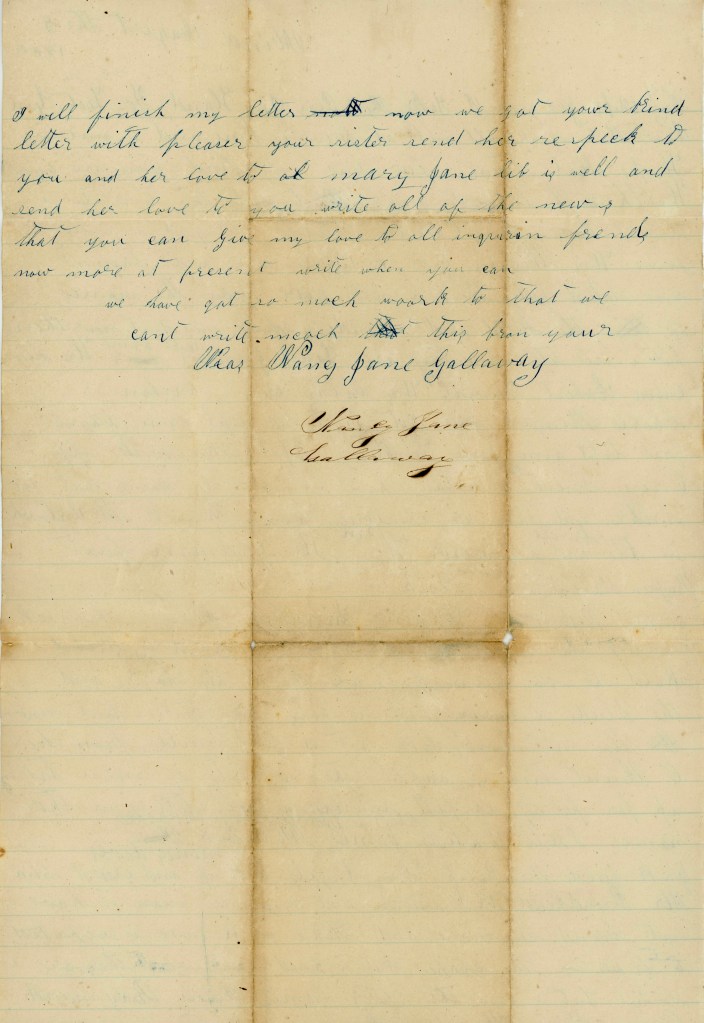 I will finish my letter now we got your kind
letter with pleaser your sister send her respeck to
you and her love to al mary Jane lib is well and
send her love to you write all of the news
that you can Give my love to all inqurin frends
now more at present write when you can
we have got so moch woork to that we
cant write moch this from your
Nancy Jane Gallaway
Nancy Jane
Gallaway